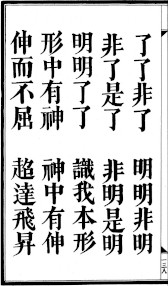 了了非了 明明非明
非了是了 非明是明
明明了了 識我本形
形中有神 神中有伸
伸而不屈 超達飛昇